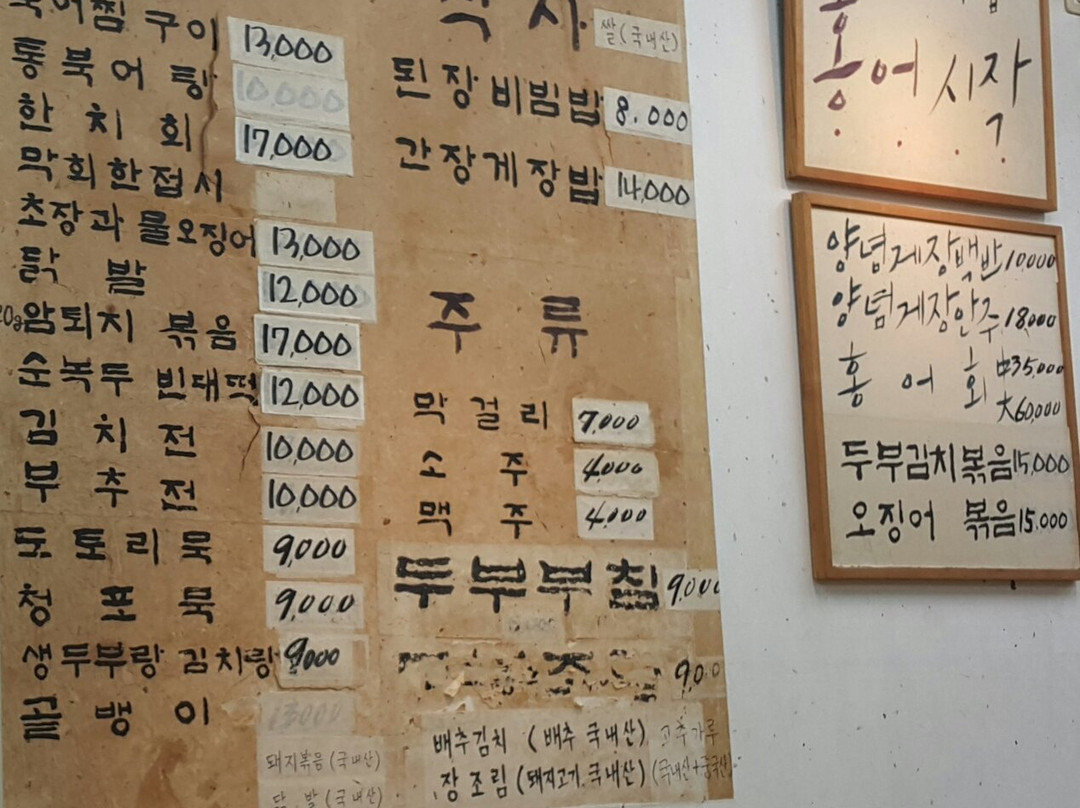 어찜 구이 13,000
통북어탕 10,000
한치회 17,000
막회한접시
초장과 물오징어 13,000
닭발 12,000
암퇴지 볶음 17,000
순녹두 빈대떡 12,000
김치전 10,000
부추전 10,000
도토리묵 9,000
청포묵 9,000
생두부랑 김치랑 9000
골뱅이 13000
돼지볶음 (국내산)
닭.발 (국내산)
식사 쌀(국내산)
된장비빔밥 8.000
간장게장밥 14,000
주류
막걸리 7,000
소주 4,000
맥주 4,000
두부부침 9,000
9,00
배추김치 (배추 국내산) 고추가루
장조림 (돼지고기.국내산) (국내산+중국산)
홍어 시작
양념게장백반 10,000
양념게장안주 18,000
홍어회 中35,000
大60,000
두부김치볶음 15,000
오징어 볶음 15.000